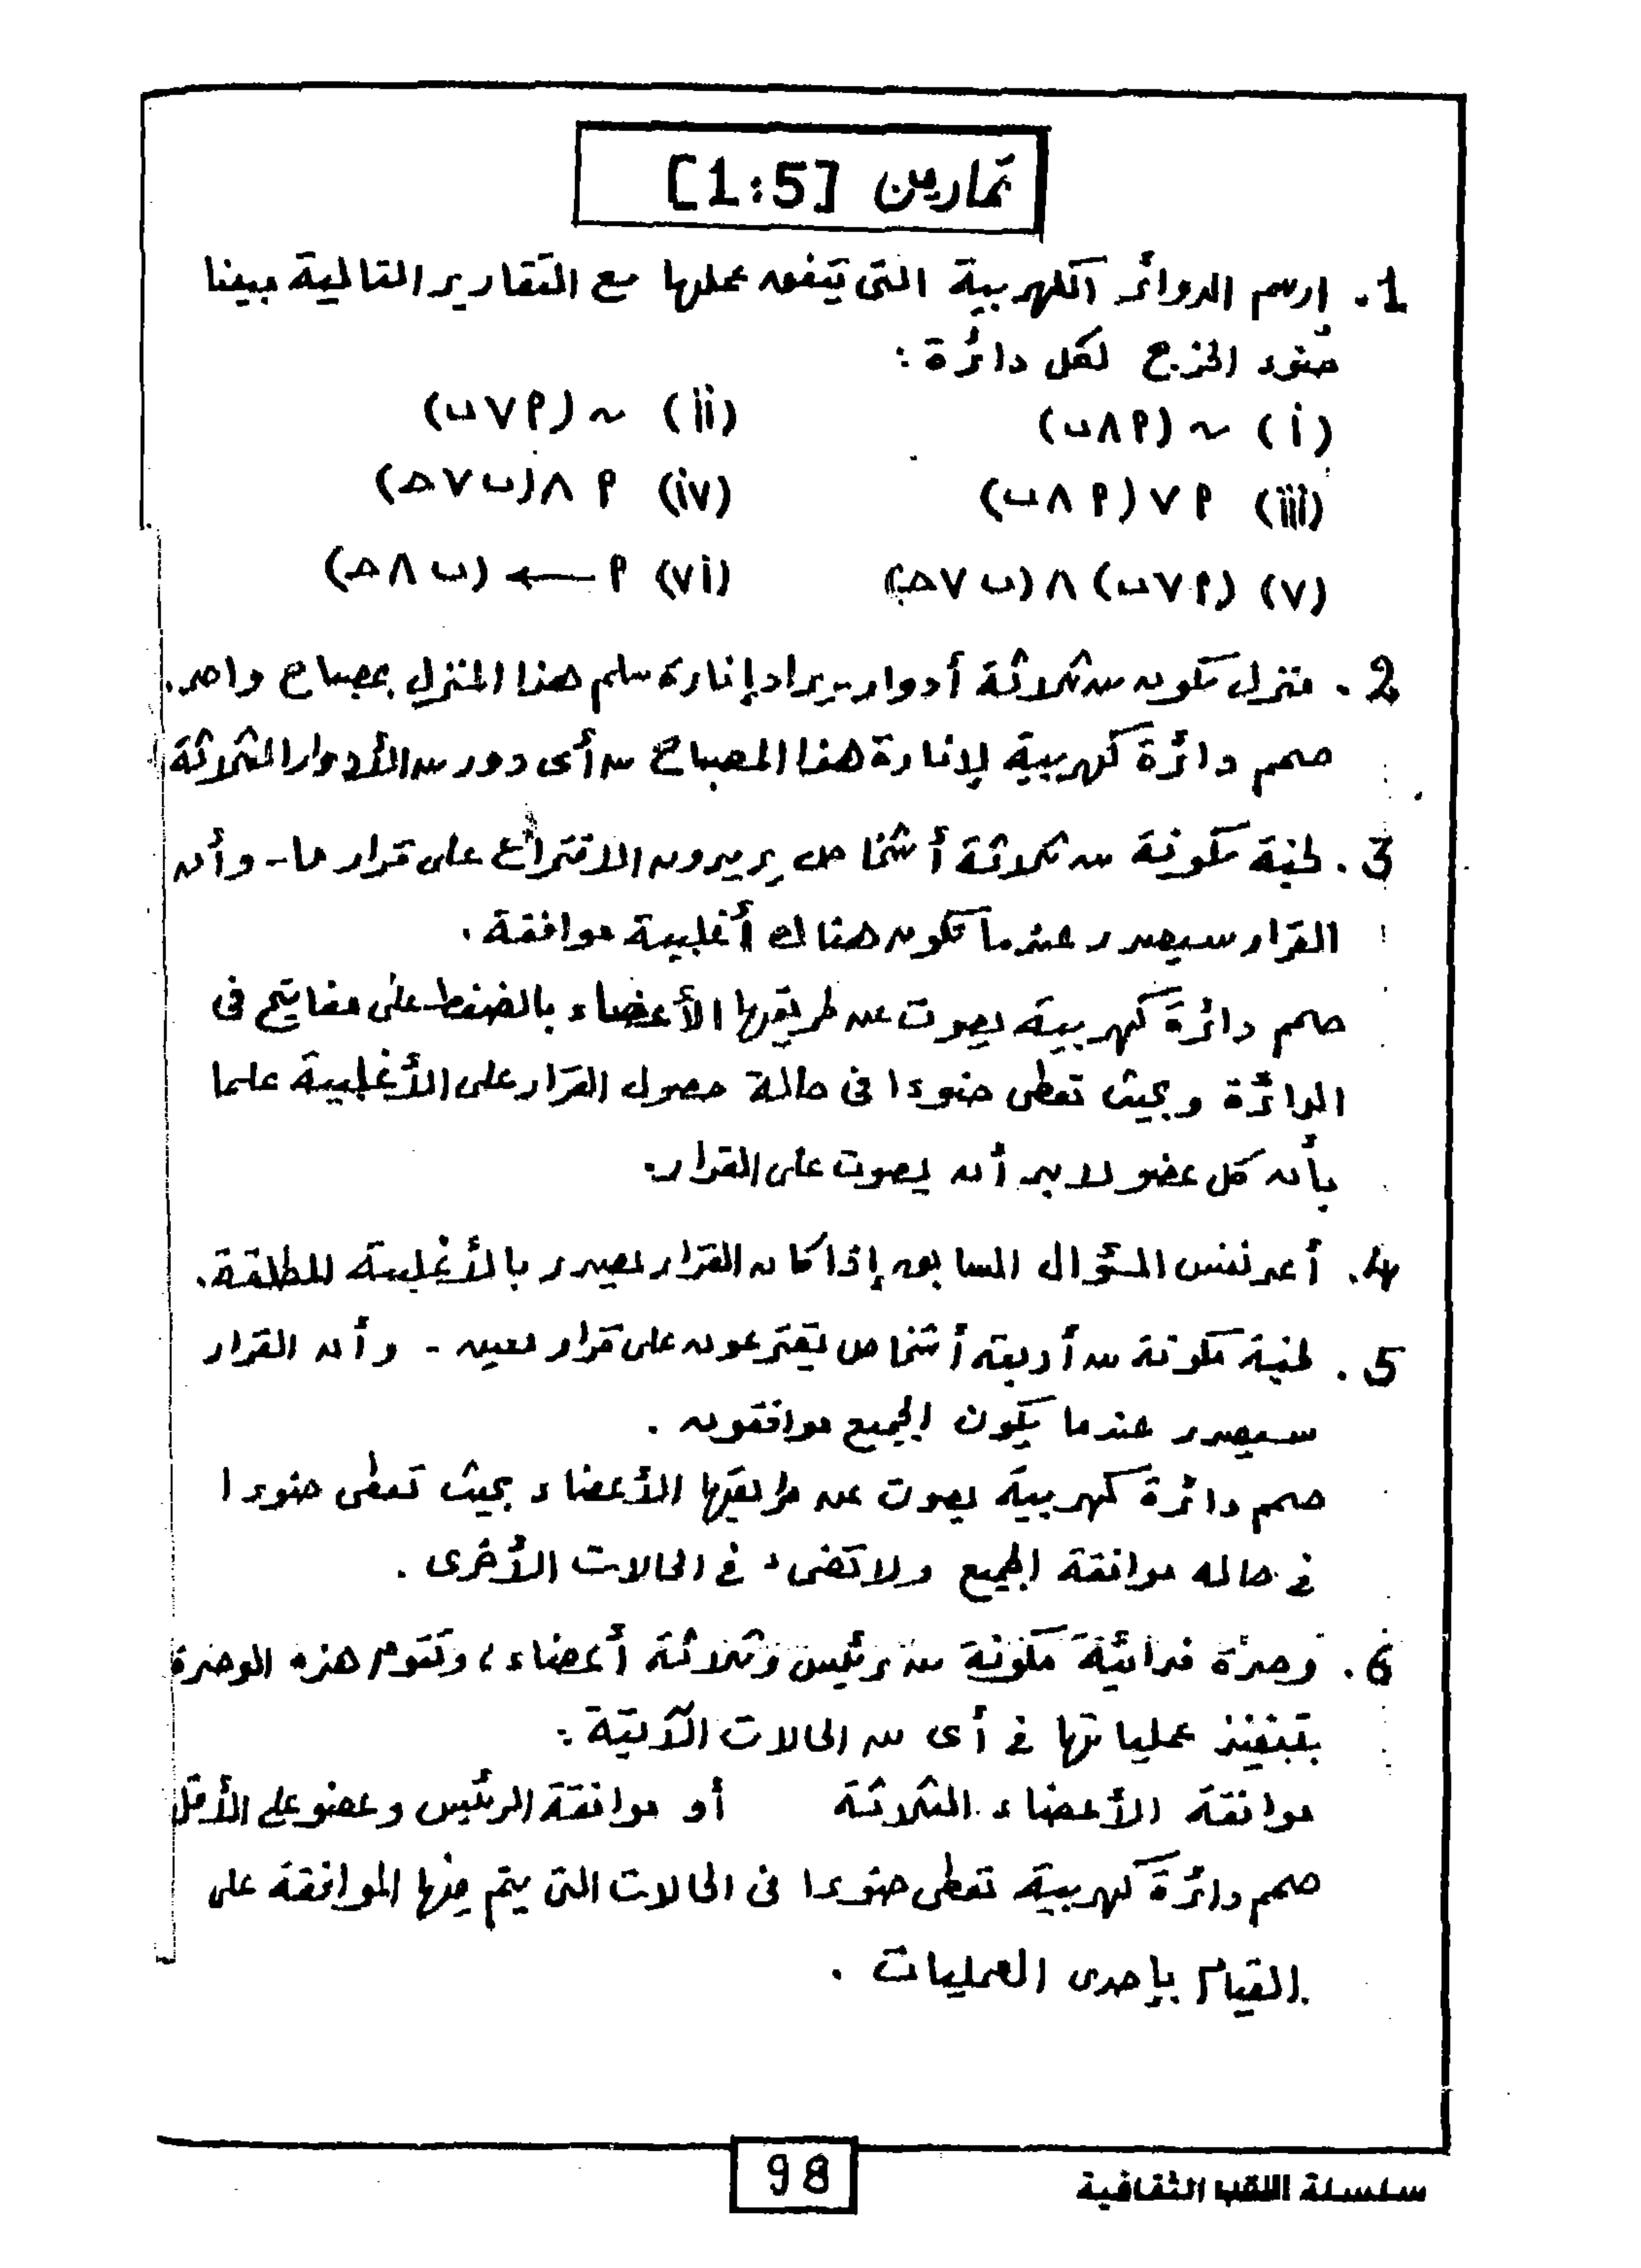 تمارين [1:5]
1. ارسم الدوائر الكهربية التى يتفق عملها مع التقارير التالية مبينا
ضوء الخرج لكل دائرة :
(i) ~ (م ∧ ب) (ii) ~ (م ∨ ب)
(iii) م ∨ (م ∧ ب) (iv) م ∧ (ب ∨ ح)
(v) (م ∨ ب) ∧ (ب ∨ ح) (vi) م ← (ب ∧ ح)
2. منزل مكون من ثلاثة أدوار يراد إنارة سلم هذا المنزل بمصباح واحد.
صمم دائرة كهربية لإنارة هذا المصباح من أى دور من الأدوار الثلاثة
3. لجنة مكونة من ثلاثة أشخاص يريدون الاقتراع على قرار ما - وأن
القرار سيصدر عندما تكون هناك أغلبية موافقة.
صمم دائرة كهربية يصوت عن طريقها الأعضاء بالضغط على مفاتيح فى
الدائرة وبحيث تعطى ضوءا فى حالة حصول القرار على الأغلبية علما
بأن كل عضو لابد أن يصوت على القرار.
4. أعد نفس السؤال السابق إذا كان القرار يصدر بالأغلبية المطلقة.
5. لجنة مكونة من أربعة أشخاص يقترعون على قرار معين - وأن القرار
سيصدر عندما يكون الجميع موافقون .
صمم دائرة كهربية يصوت عن طريقها الأعضاء بحيث تعطى ضوءا
فى حاله موافقة الجميع ولا تضىء فى الحالات الأخرى .
6. وحدة فدائية مكونة من رئيس وثلاثة أعضاء، وتقوم هذه الوحدة
بتنفيذ عملياتها فى أى من الحالات الآتية :
موافقة الأعضاء الثلاثة أو موافقة الرئيس وعضو على الأقل
صمم دائرة كهربية تعطى ضوءا فى الحالات التى يتم فيها الموافقة على
القيام بإحدى العمليات .
98
سلسلة اللقب الثقافية